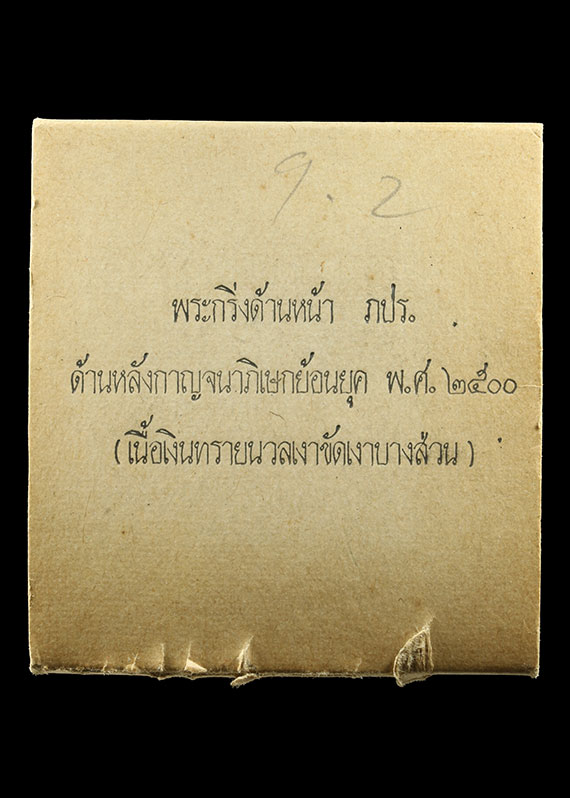 9.2
พระกริ่งด้านหน้า ภปร.
ด้านหลังกาญจนาภิเษกย้อนยุค พ.ศ. ๒๕๐๐
(เนื้อเงินทรายนวลเงาขัดเงาบางส่วน)